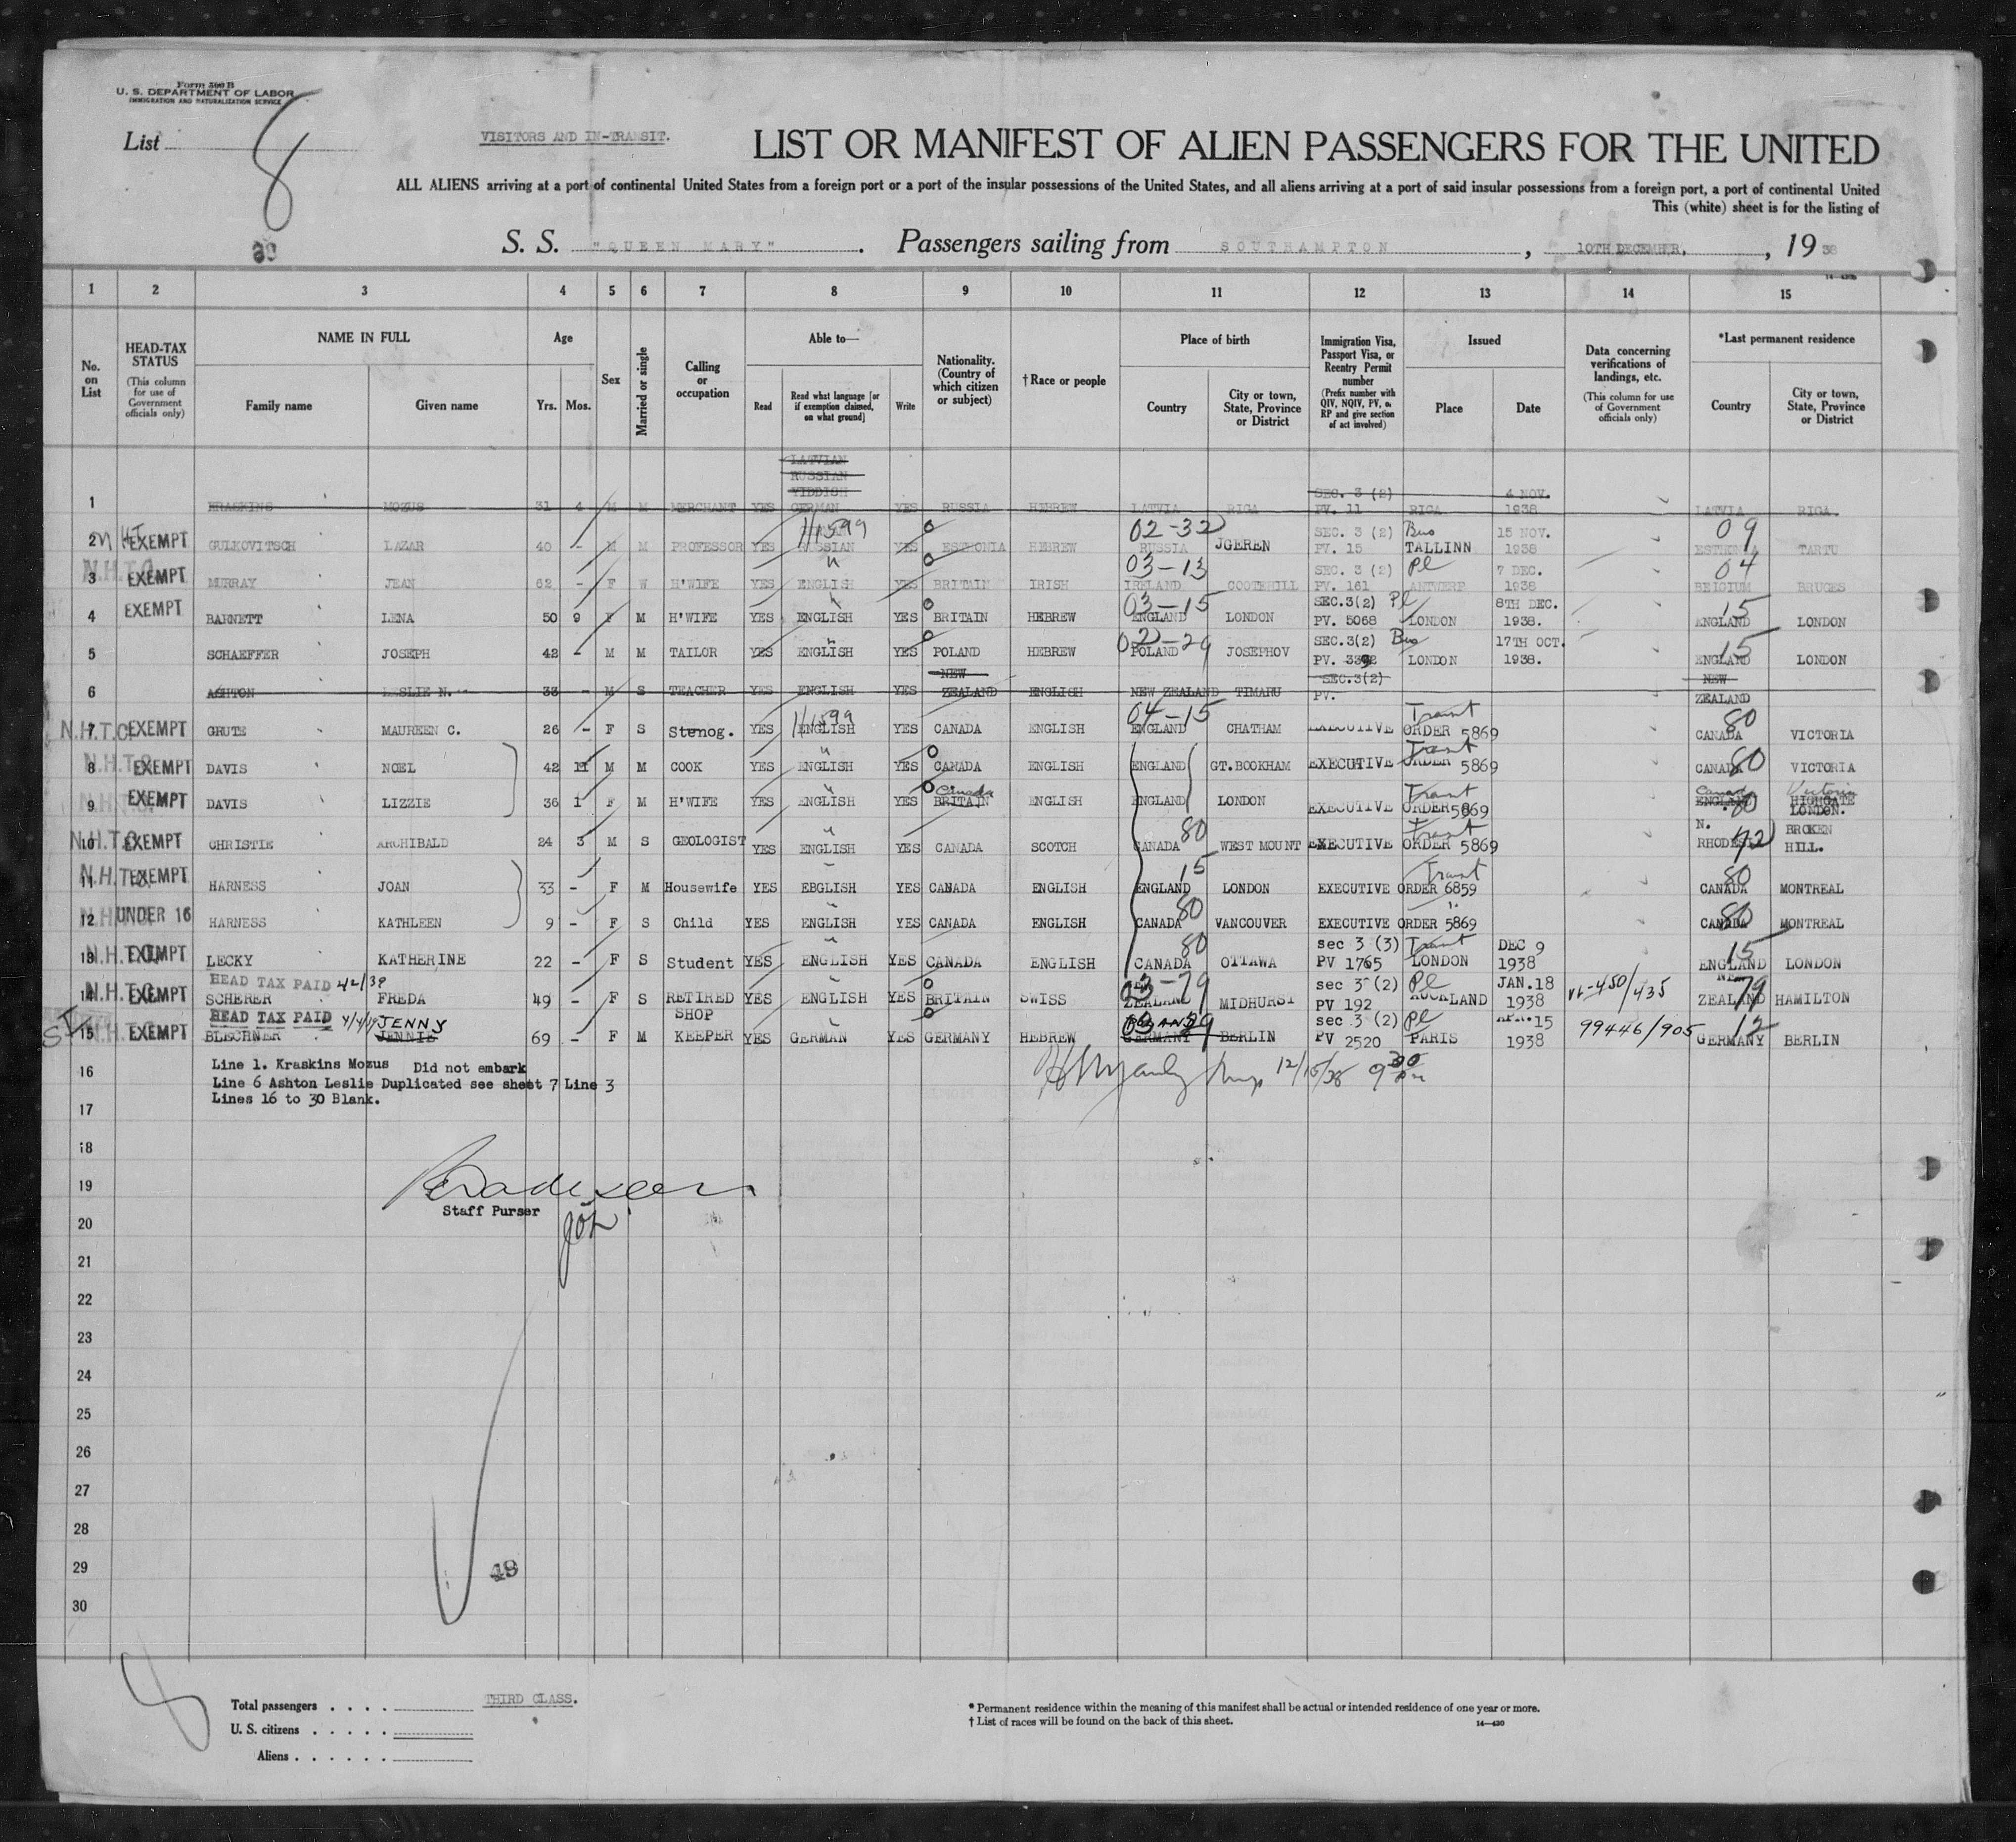 Form 500 B
U. S. DEPARTMENT OF LABOR
IMMIGRATION AND NATURALIZATION SERVICE
List 8
VISITORS AND IN-TRANSIT.
LIST OR MANIFEST OF ALIEN PASSENGERS FOR THE UNITED
ALL ALIENS arriving at a port of continental United States from a foreign port or a port of the insular possessions of the United States, and all aliens arriving at a port of said insular possessions from a foreign port, a port of continental United
This (white) sheet is for the listing of
S. S. "QUEEN MARY". Passengers sailing from SOUTHAMPTON, 10TH DECEMBER, 1938
1 2 3 4 5 6 7 8 9 10 11 12 13 14 15
No. on List
HEAD-TAX STATUS (This column for use of Government officials only)
NAME IN FULL Family name Given name
Age Yrs. Mos.
Sex
Married or single
Calling or occupation
Able to— Read Read what language [or if exemption claimed, on what ground] Write
Nationality. (Country of which citizen or subject)
†Race or people
Place of birth Country City or town, State, Province or District
Immigration Visa, Passport Visa, or Reentry Permit number (Prefix number with QIV, NQIV, PV, or RP and give section of act involved)
Issued Place Date
Data concerning verifications of landings, etc. (This column for use of Government officials only)
*Last permanent residence Country City or town, State, Province or District
LATVIAN
RUSSIAN
YIDDISH SEC. 3 (2) 4 NOV.
1 KRASKINS MOZUS 31 4 M M MERCHANT YES GERMAN YES RUSSIA HEBREW LATVIA RIGA PV. 11 RIGA 1938 LATVIA RIGA.
1/1599 02-32 SEC. 3 (2) Bus 15 NOV. 09
2 EXEMPT GULKOVITSCH LAZAR 40 - M M PROFESSOR YES RUSSIAN YES ESTHONIA HEBREW RUSSIA JGEREN PV. 15 TALLINN 1938 ESTHONIA TARTU
N.H.T.C. 03-13 SEC. 3 (2) Pl 7 DEC. 04
3 EXEMPT MURRAY JEAN 62 - F W H'WIFE YES ENGLISH YES BRITAIN IRISH IRELAND COOTEHILL PV. 161 ANTWERP 1938 BELGIUM BRUGES
03-15 SEC.3(2) Pl 8TH DEC. 15
4 EXEMPT BARNETT LENA 50 9 F M H'WIFE YES ENGLISH YES BRITAIN HEBREW ENGLAND LONDON PV. 5068 LONDON 1938. ENGLAND LONDON
02-29 SEC.3(2) Bus 17TH OCT. 15
5 SCHAEFFER JOSEPH 42 - M M TAILOR YES ENGLISH YES POLAND HEBREW POLAND JOSEPHOV PV. 3392 LONDON 1938. ENGLAND LONDON
NEW SEC.3(2) NEW
6 ASHTON LESLIE N. 33 - M S TEACHER YES ENGLISH YES ZEALAND ENGLISH NEW ZEALAND TIMARU PV. ZEALAND
1/1599 04-15 Transit 80
7 N.H.T.C. EXEMPT GRUTE MAUREEN C. 26 - F S Stenog. YES ENGLISH YES CANADA ENGLISH ENGLAND CHATHAM EXECUTIVE ORDER 5869 CANADA VICTORIA
Transit 80
8 N.H.T.C. EXEMPT DAVIS NOEL 42 11 M M COOK YES ENGLISH YES CANADA ENGLISH ENGLAND GT. BOOKHAM EXECUTIVE ORDER 5869 CANADA VICTORIA
Canada Transit Canada Victoria
9 N.H.T.C. EXEMPT DAVIS LIZZIE 36 1 F M H'WIFE YES ENGLISH YES BRITAIN ENGLISH ENGLAND LONDON EXECUTIVE ORDER 5869 ENGLAND 80 HIGHGATE LONDON.
80 Transit N. 72 BROKEN
10 N.H.T.C. EXEMPT CHRISTIE ARCHIBALD 24 3 M S GEOLOGIST YES ENGLISH YES CANADA SCOTCH CANADA WEST MOUNT EXECUTIVE ORDER 5869 RHODESIA HILL.
15 Transit 80
11 N.H.T.C. EXEMPT HARNESS JOAN 33 - F M Housewife YES EBGLISH YES CANADA ENGLISH ENGLAND LONDON EXECUTIVE ORDER 6859 CANADA MONTREAL
80 " 80
12 UNDER 16 HARNESS KATHLEEN 9 - F S Child YES ENGLISH YES CANADA ENGLISH CANADA VANCOUVER EXECUTIVE ORDER 5869 CANADA MONTREAL
80 sec 3 (3) Transit DEC 9 15
13 N.H.T.C. EXEMPT LECKY KATHERINE 22 - F S Student YES ENGLISH YES CANADA ENGLISH CANADA OTTAWA PV 1765 LONDON 1938 ENGLAND LONDON
HEAD TAX PAID 4/2/39 03-79 sec 3 (2) Pl JAN.18 450/435 NEW 79
14 N.H.T.C. EXEMPT SCHERER FREDA 49 - F S RETIRED YES ENGLISH YES BRITAIN SWISS ZEALAND MIDHURST PV 192 AUCKLAND 1938 ZEALAND HAMILTON
HEAD TAX PAID JENNY SHOP sec 3 (2) Pl APR.15 99446/905 12
15 N.H.T.C. EXEMPT BLECHNER JENNIE 69 - F M KEEPER YES GERMAN YES GERMANY HEBREW GERMANY BERLIN PV 2520 PARIS 1938 GERMANY BERLIN
16 Line 1. Kraskins Mozus Did not embark
Line 6 Ashton Leslie Duplicated see sheet 7 Line 3
Lines 16 to 30 Blank.
12/15/38 9 30
17
18
19
Staff Purser
20
21
22
23
24
25
26
27
28
29
48
30
8
Total passengers . . . .
THIRD CLASS.
U. S. citizens . . . . .
Aliens . . . . . .
* Permanent residence within the meaning of this manifest shall be actual or intended residence of one year or more.
† List of races will be found on the back of this sheet.
14—430